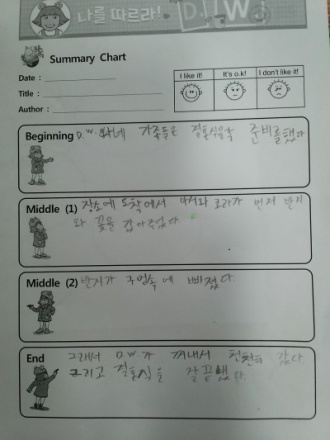 나를 따르라! D.W!
Summary Chart
Date :
Title :
Author :
I like it!
It's o.k!
I don't like it!
Beginning D.W. 와네 가족들은 결혼식을 준비를했다
Middle (1) 장소에 도착해서 아서와 코라가 먼저 반지
와 꽃을 잡아주었다
Middle (2) 반지가 구멍속에 빠졌다.
End 그래서 D.W가 꺼내서 천천히 갔다
그리고 결혼식을 잘끝했다.